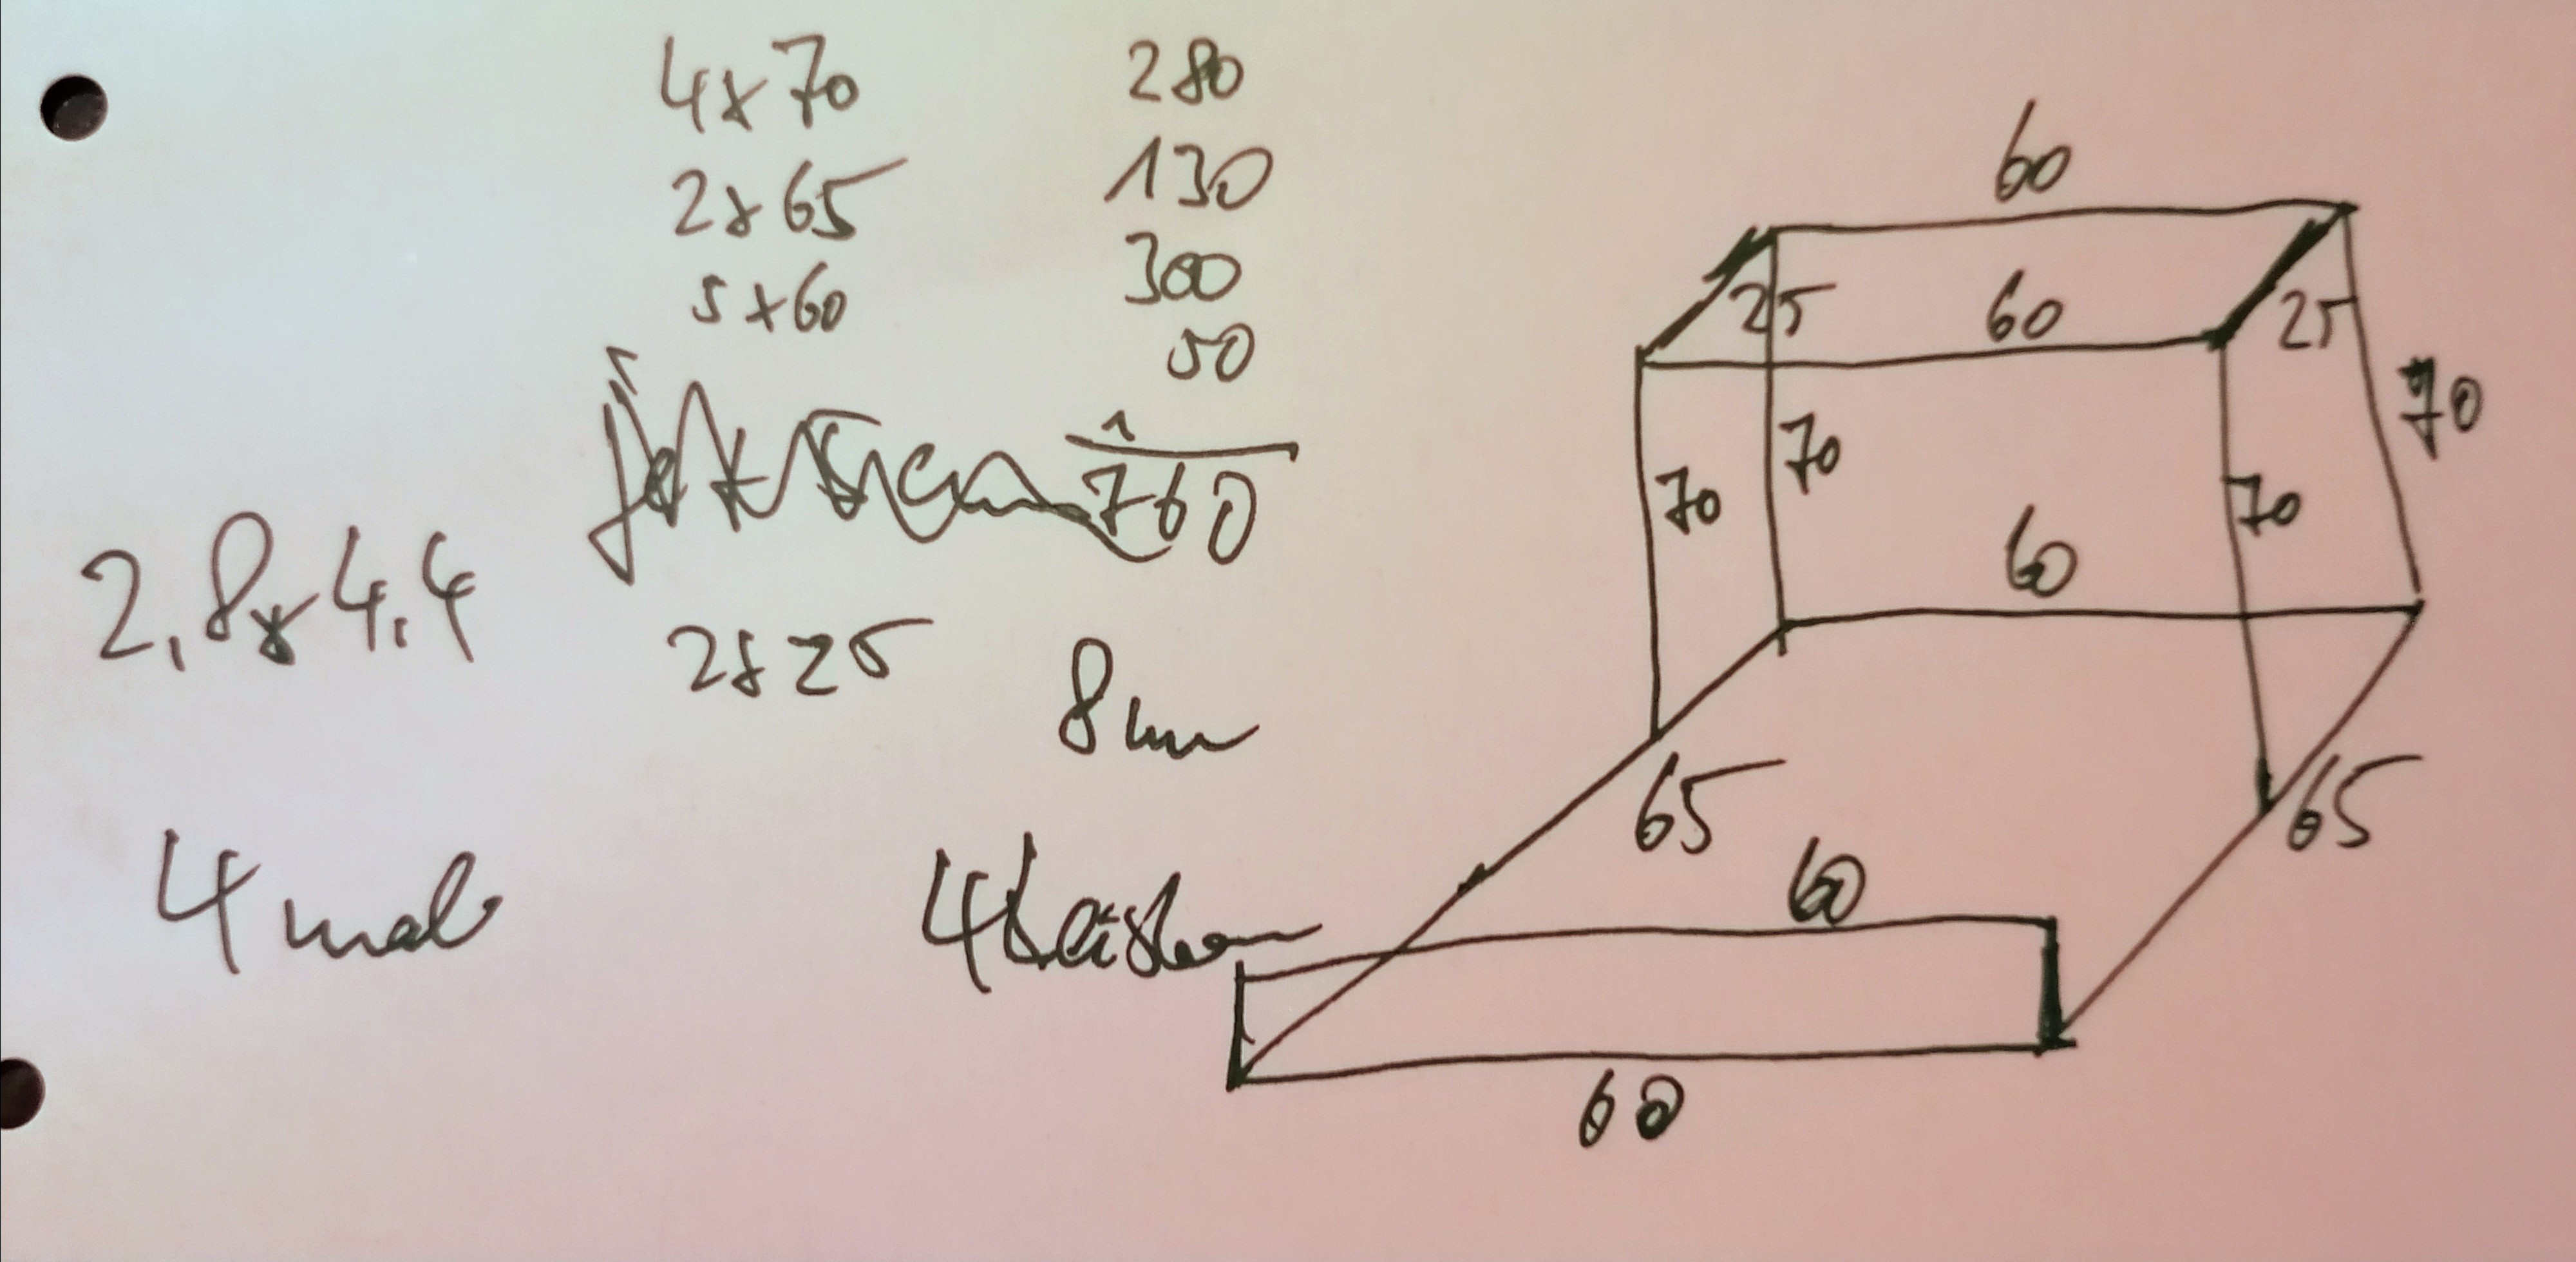 4x70 280
2x65 130
5x60 300
50
1
760
2,8x4,4
2x25 8m
4 mal
4 Leisten
60
25 60 25
70
70
70
70
60
65
65
60
60